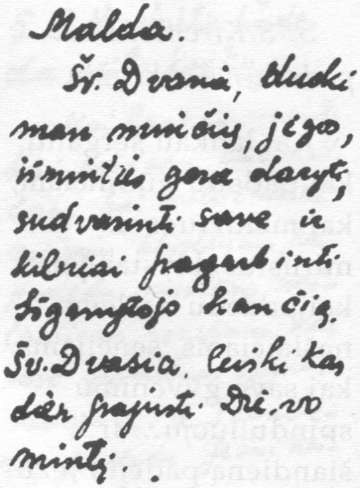 Malda.
Šv. Dvasia, duoki
man minčių, jėgos,
išminties gera daryti,
sudvasinti save ir
kilniai pagarbinti
Išganytojo kančią.
Šv. Dvasia, leiski kas
dien pajusti Dievo
mintį.